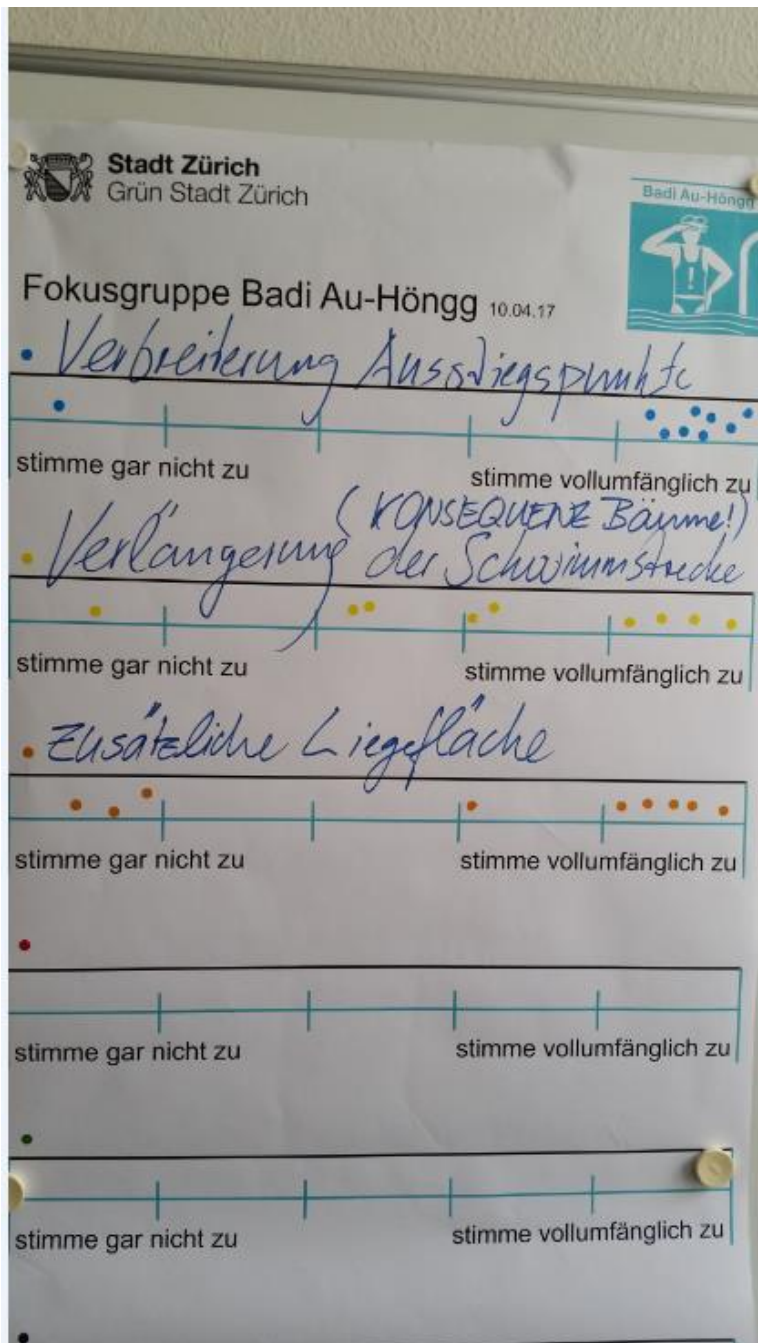 Stadt Zürich
Grün Stadt Zürich
Badi Au-Höngg
Fokusgruppe Badi Au-Höngg 10.04.17
• Verbreiterung Ausstiegspunkte
stimme gar nicht zu stimme vollumfänglich zu
(KONSEQUENZ Bäume!)
• Verlängerung der Schwimmstrecke
stimme gar nicht zu stimme vollumfänglich zu
• Zusätzliche Liegefläche
stimme gar nicht zu stimme vollumfänglich zu
stimme gar nicht zu stimme vollumfänglich zu
stimme gar nicht zu stimme vollumfänglich zu